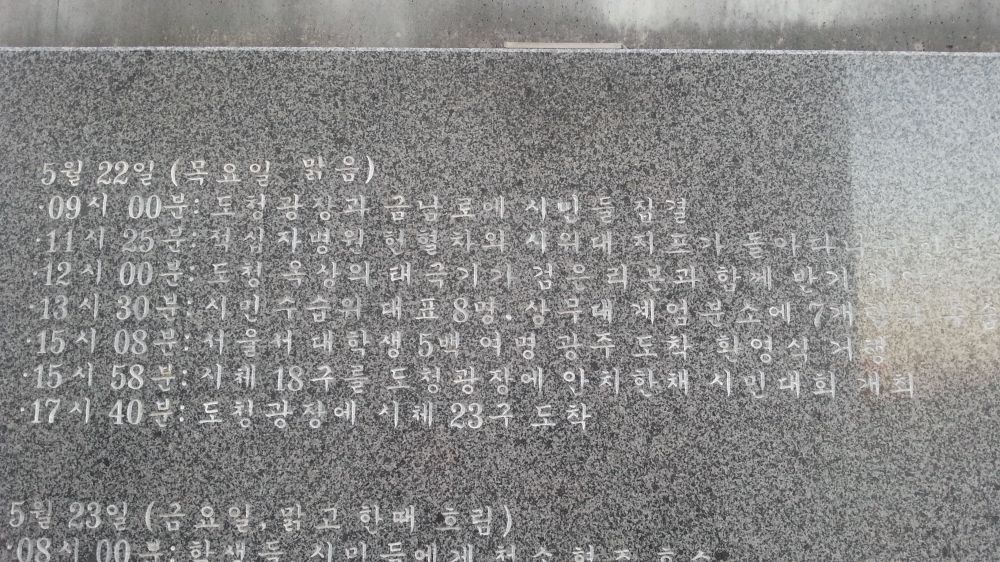 5월 22일 (목요일 맑음)
·09시 00분: 도청광장과 금남로에 시민들 집결
·11시 25분: 적십자병원 헌혈차와 시위대 지프가 돌아다니며
·12시 00분: 도청 옥상의 태극기가 검은 리본과 함께 반기
·13시 30분: 시민수습위 대표 8명. 상무대 계엄분소에 7개
·15시 08분: 서울서 대학생 5백 여명 광주 도착 환영식 거행
·15시 58분: 시체 18구를 도청광장에 안치한채 시민대회 개최
·17시 40분: 도청광장에 시체 23구 도착
5월 23일 (금요일, 맑고 한때 흐림)
·08시 00분: 학생들 시민들에게